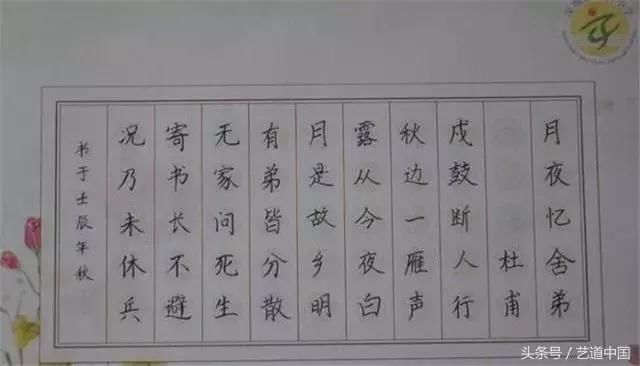 月夜忆舍弟
杜甫
戍鼓断人行
秋边一雁声
露从今夜白
月是故乡明
有弟皆分散
无家问死生
寄书长不避
况乃未休兵
书于壬辰年秋
头条号 / 艺道中国